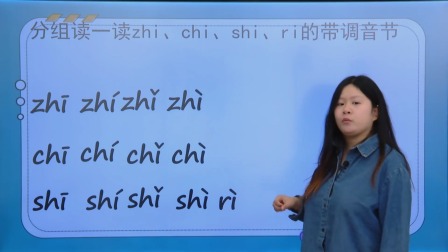 分组读一读zhi、chi、shi、ri的带调音节
zhī zhí zhǐ zhì
chī chí chǐ chì
shī shí shǐ shì rì